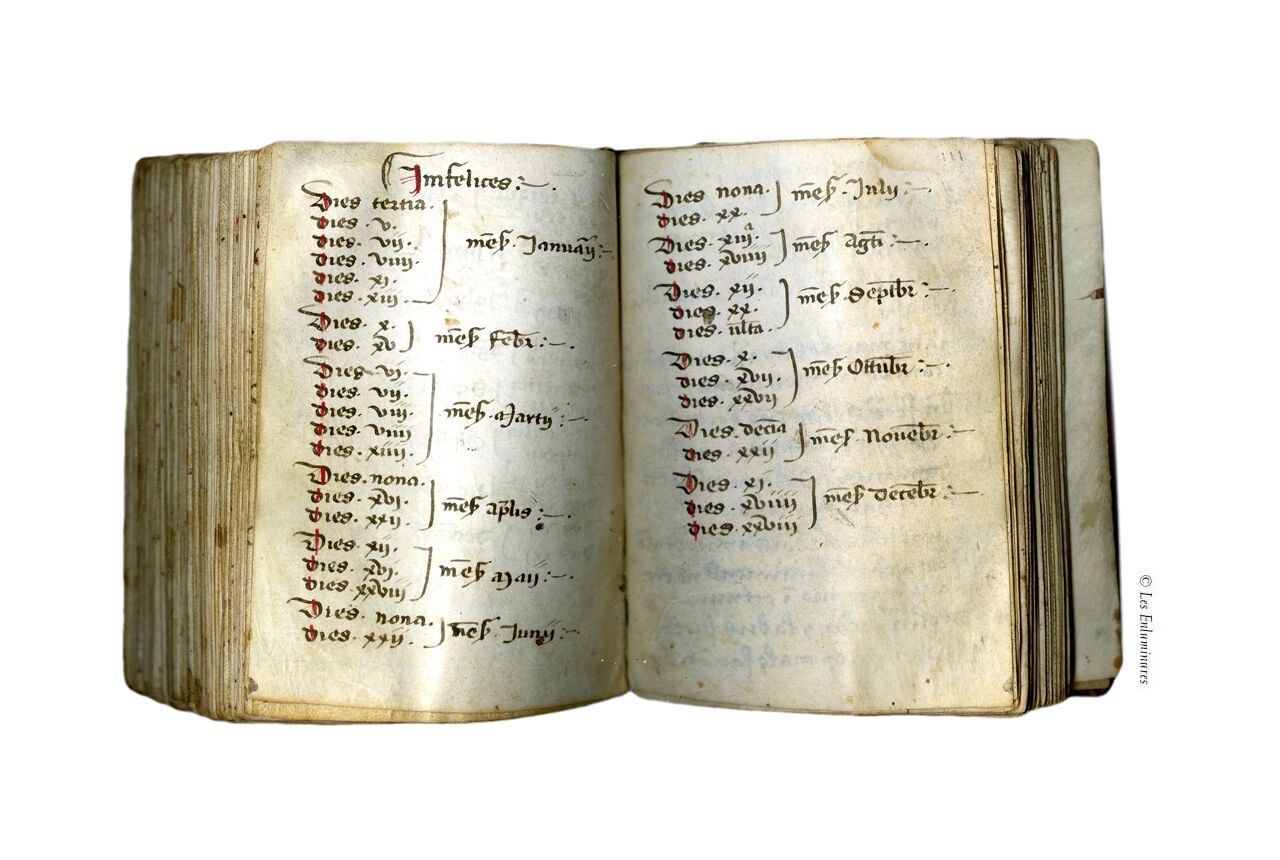 Imfelices
Dies tertia.
dies. v.
dies. vii.
dies. viiii.
dies. xi.
dies. xiii.
mēs. Ianuarii
Dies. x.
dies. xv
mēs Febr̄.
Dies. vi.
dies. vii.
dies. viii.
dies. viiii
dies. xiiii.
mēs. Martii
Dies. nona.
dies. xvi.
dies. xxii.
mēs ap̄lis
Dies. xii.
dies. xvi.
dies. xxviii
mēs Maii
Dies. nona.
dies. xxii.
mēs. Iunii
111
Dies nona.
dies. xx.
mēs. Iulii
Dies. xiii
dies. xviiii
mēs Agti
Dies. xii.
dies. xx.
dies. ulta.
mēs. Septbr
Dies. x.
dies. xvii.
dies. xxvii
mēs Ottubr
Dies. decīa
dies. xxii
mēs. Nouēbr
Dies. xi.
dies. xviiii
dies xxviii
mēs decēbr
© Les Enluminures